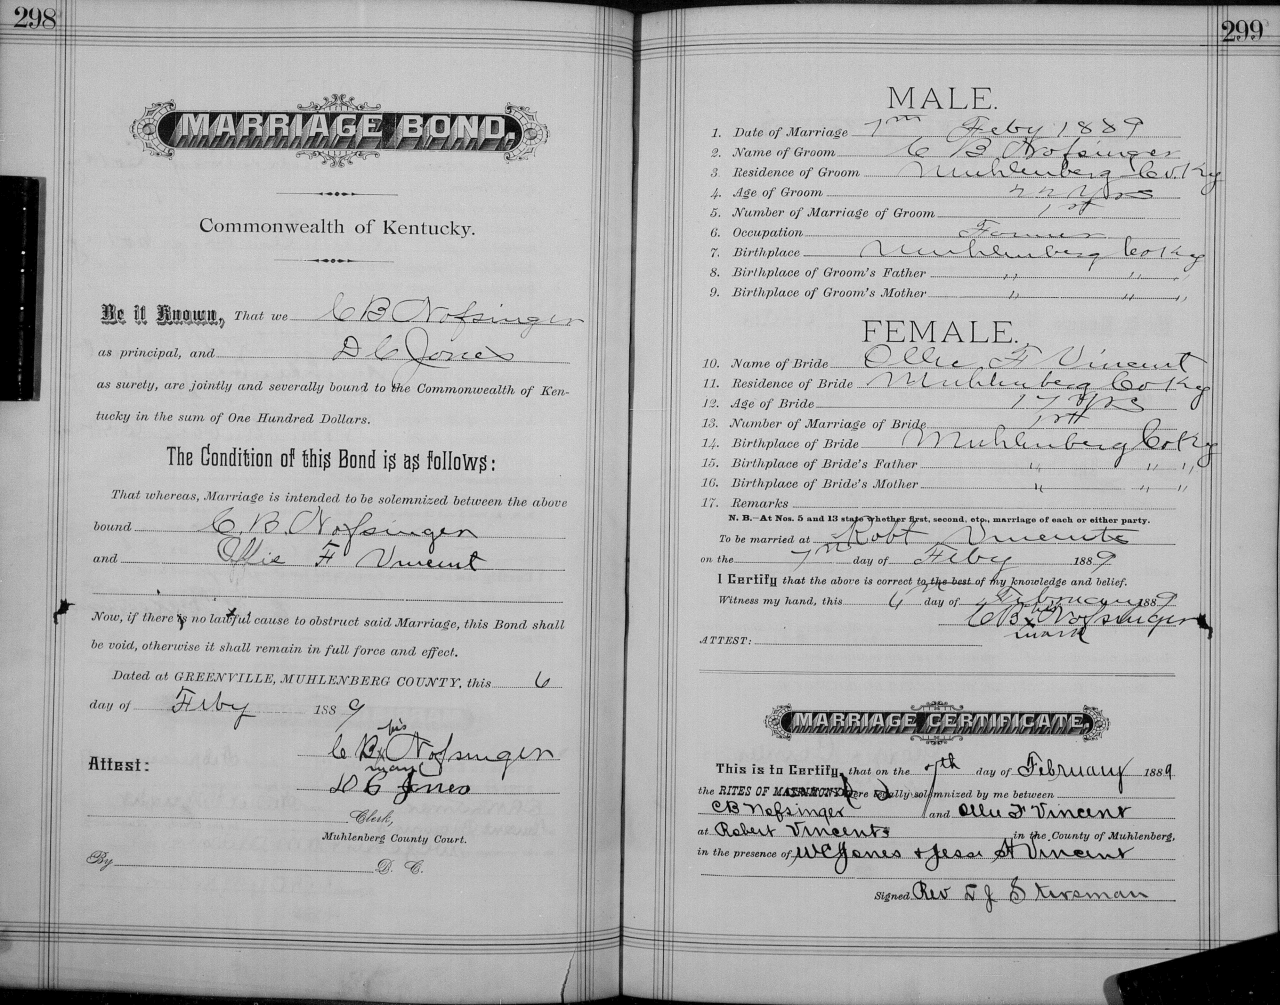 298
MARRIAGE BOND.
Commonwealth of Kentucky.
Be it Known, That we C B Nofsinger
as principal, and D C Jones
as surety, are jointly and severally bound to the Commonwealth of Ken-
tucky in the sum of One Hundred Dollars.
The Condition of this Bond is as follows:
That whereas, Marriage is intended to be solemnized between the above
bound C. B. Nofsinger
and Ollie F Vincent
Now, if there is no lawful cause to obstruct said Marriage, this Bond shall
be void, otherwise it shall remain in full force and effect.
Dated at GREENVILLE, MUHLENBERG COUNTY, this 6
day of Feby 1889
his
C B x Nofsinger
Attest: mark
D C Jones
Clerk,
Muhlenberg County Court.
By D. C.
299
MALE.
1. Date of Marriage 7th Feby 1889
2. Name of Groom C B Nofsinger
3. Residence of Groom Muhlenberg Co. Ky
4. Age of Groom 22 Yrs
5. Number of Marriage of Groom 1st
6. Occupation Farmer
7. Birthplace Muhlenberg Co Ky
8. Birthplace of Groom's Father " " "
9. Birthplace of Groom's Mother " " "
FEMALE.
10. Name of Bride Ollie F Vincent
11. Residence of Bride Muhlenberg Co Ky
12. Age of Bride 17 Yrs
13. Number of Marriage of Bride 1st
14. Birthplace of Bride Muhlenberg Co Ky
15. Birthplace of Bride's Father " " "
16. Birthplace of Bride's Mother " " "
17. Remarks
N. B.—At Nos. 5 and 13 state whether first, second, etc., marriage of each or either party.
To be married at Robt Vincents
on the 7th day of Feby 1889
I Certify that the above is correct to the best of my knowledge and belief.
Witness my hand, this 6 day of February 1889
his
C B x Nofsinger
mark
ATTEST:
MARRIAGE CERTIFICATE.
This is to Certify, that on the 7th day of February 1889
the RITES OF MATRIMONY were legally solemnized by me between
C B Nofsinger and Ollie F Vincent
at Robert Vincents in the County of Muhlenberg,
in the presence of W C Jones + Jesse H Vincent
Signed Rev